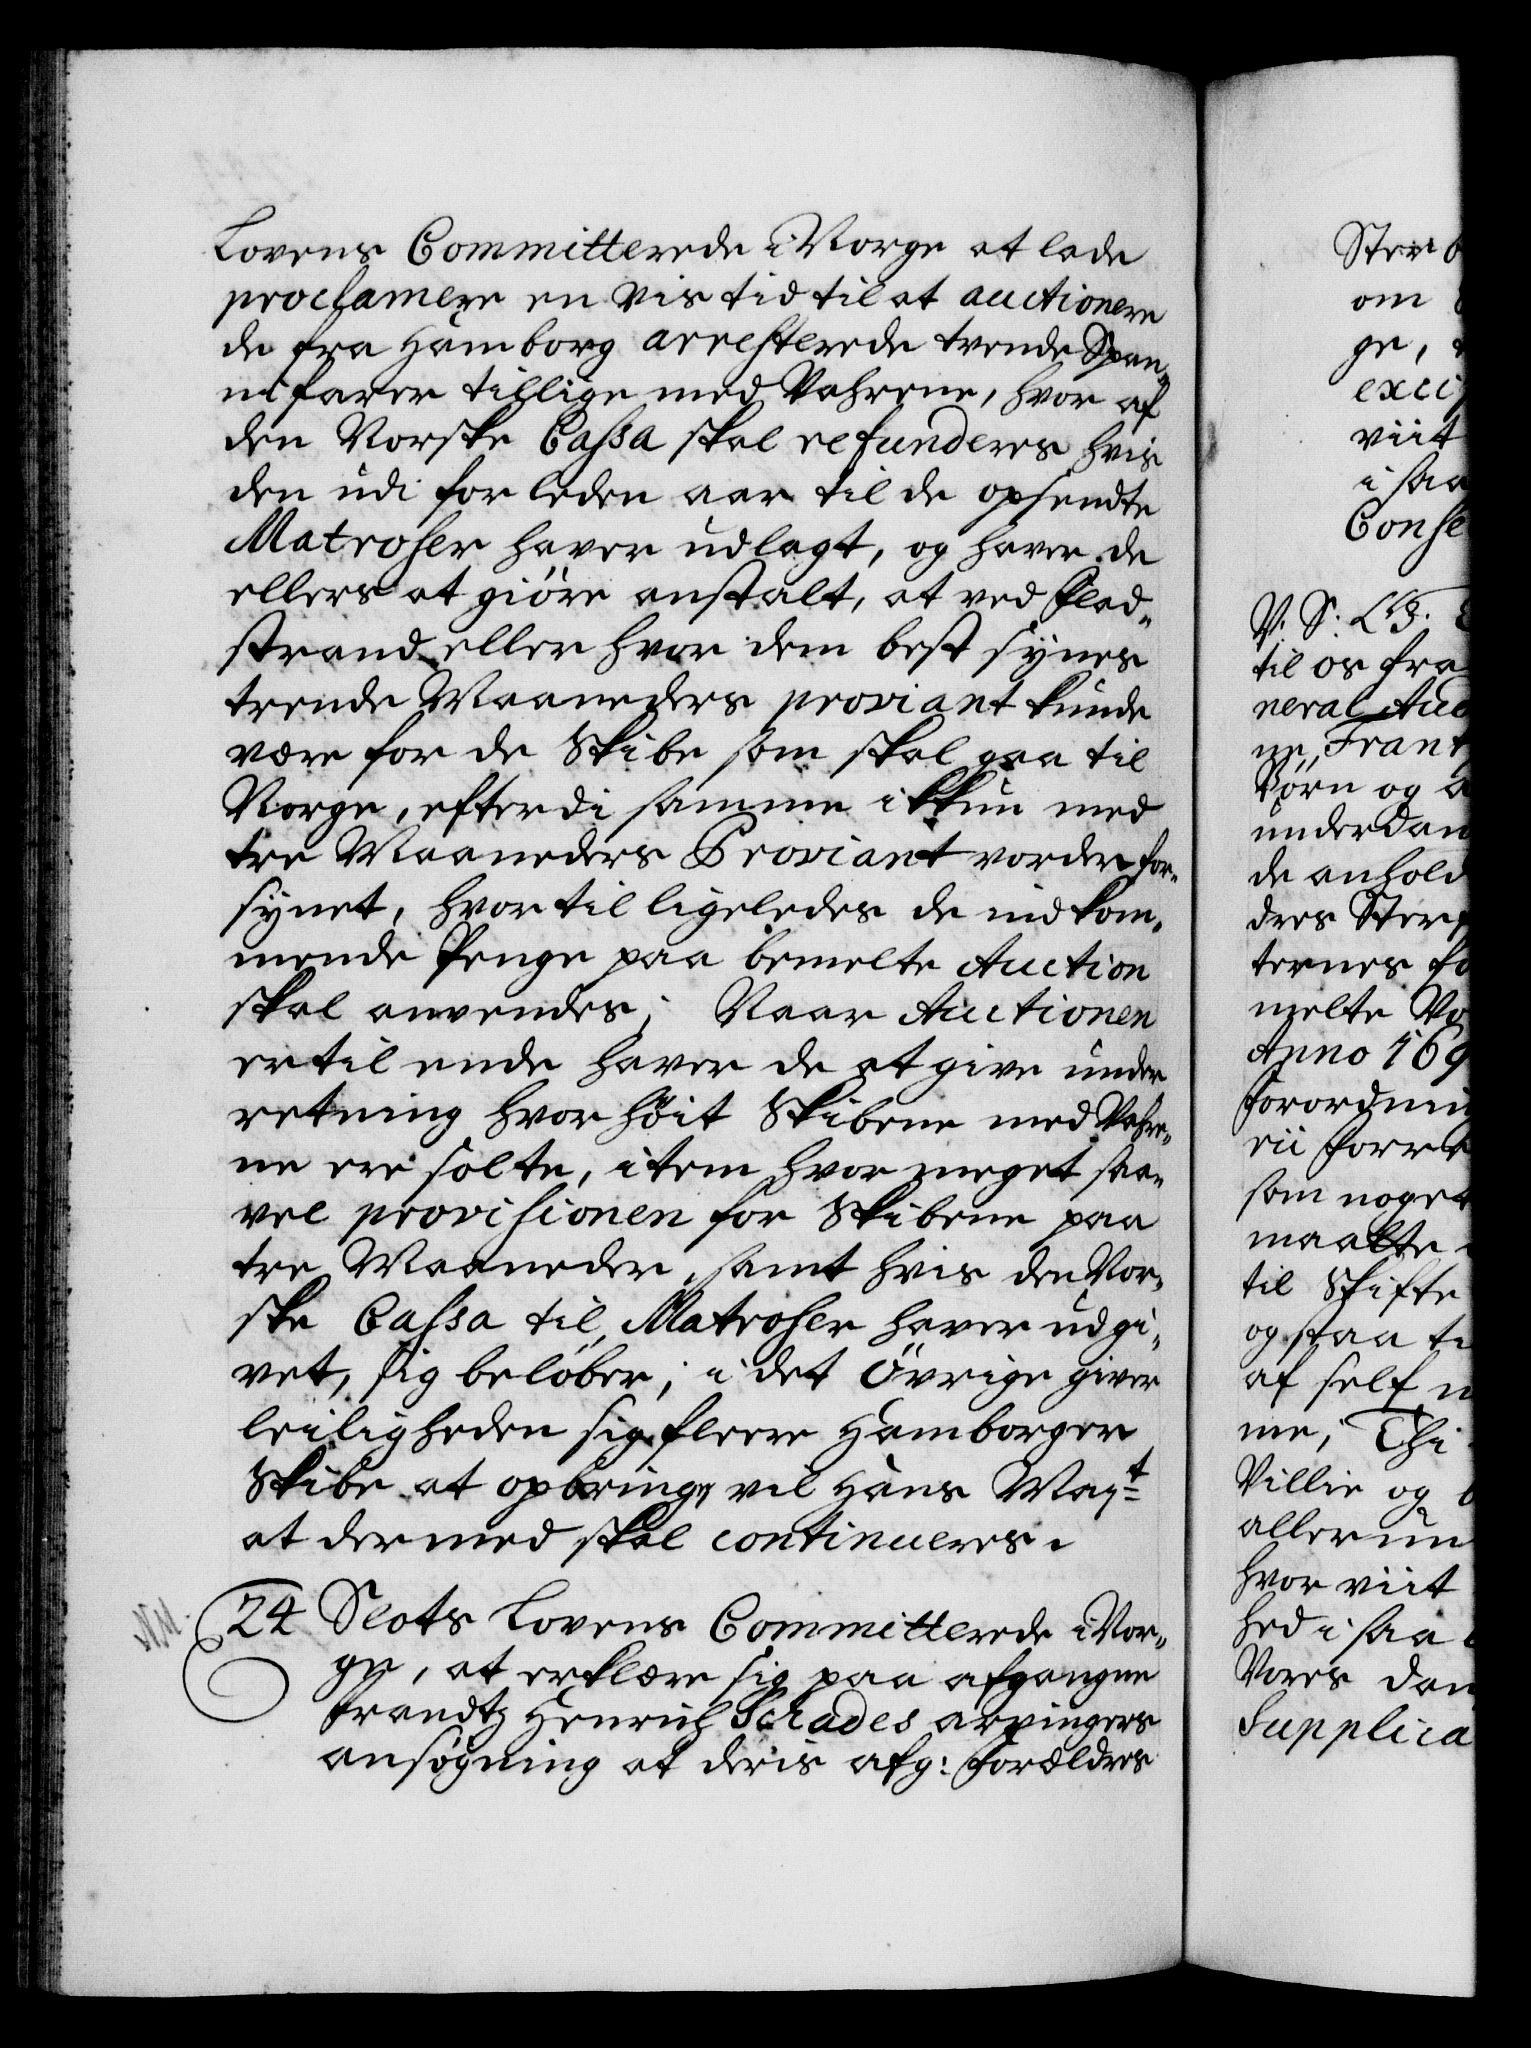 Lovens Committerede i Norge at lade
proclamere en vis tid til at auctionere
de fra Hamborg arresterede trende Span„
nifarer tillige med Vahrene, hvor af
den Norske Cassa skal refunderes hvis
den udi forleden aar til de opsendte
Matroser haver udlagt, og haver de
ellers at giøre anstalt, at ved Flad„
strand eller hvor dem best synes
trende Maaneders proviant kunde
være for de Skibe som skal gaa til
Norge, efterdi samme ikkun med
tre Maaneders Proviant vorder for„
synet, hvortil ligeledes de indkom„
mende Penge paa bemelte Auction
skal anvendes; Naar Auctionen
er til ende haver de at give under
retning hvor høit Skibene med Vahre„
ne ere solte, item hvor meget saa„
vel provisionen for Skibene paa
tre Maaneder, samt hvis den Nor„
ske Cassa til Matroser haver udgi„
vet, sig beløber; i det Övrige giver
leiligheden sig fleere Hamborger
Skibe at opbringe, vil Hans Mayt
at dermed skal continueres.
24 Slots Lovens Committerede i Nor„
ge, at erklære sig paa afgangne
Frandtz Henrich Schades arvingers
ansøgning at deris afg: Forældres
Ster
om
ge,
exci
viit
i saa
Conse
V. S. LG.
til os fra
neral Aud
ne, Frant
Børn og
underdan
de anhold
dres Ster
ternes fo
melte Vo
Anno 169
Forordnin
rii Forre
som noget
maatte
til Skifte
og staa ti
af self
me, Thi
Villie og
allerun
hvor viit
hed i saa
Vores dan
Supplica